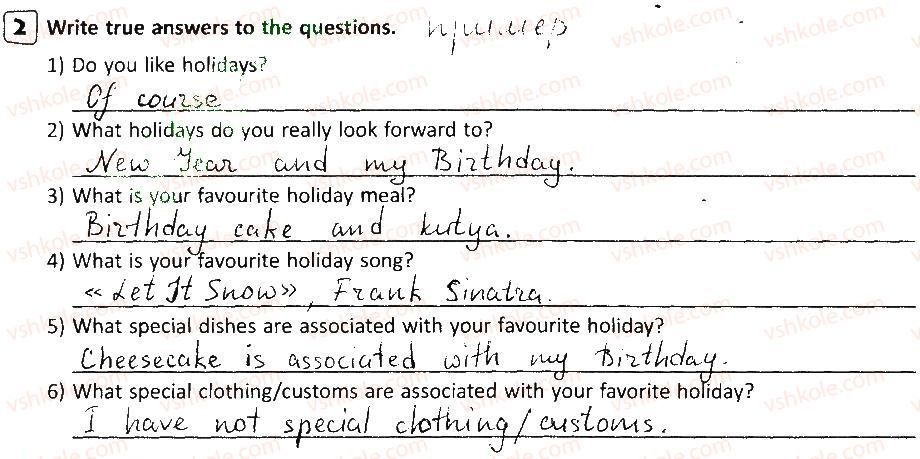 2 Write true answers to the questions. пример
1) Do you like holidays?
Of course
2) What holidays do you really look forward to?
New Year and my Birthday.
3) What is your favourite holiday meal?
Birthday cake and kutya.
4) What is your favourite holiday song?
«Let It Snow», Frank Sinatra.
5) What special dishes are associated with your favourite holiday?
Cheesecake is associated with my Birthday.
6) What special clothing/customs are associated with your favorite holiday?
I have not special clothing/customs.